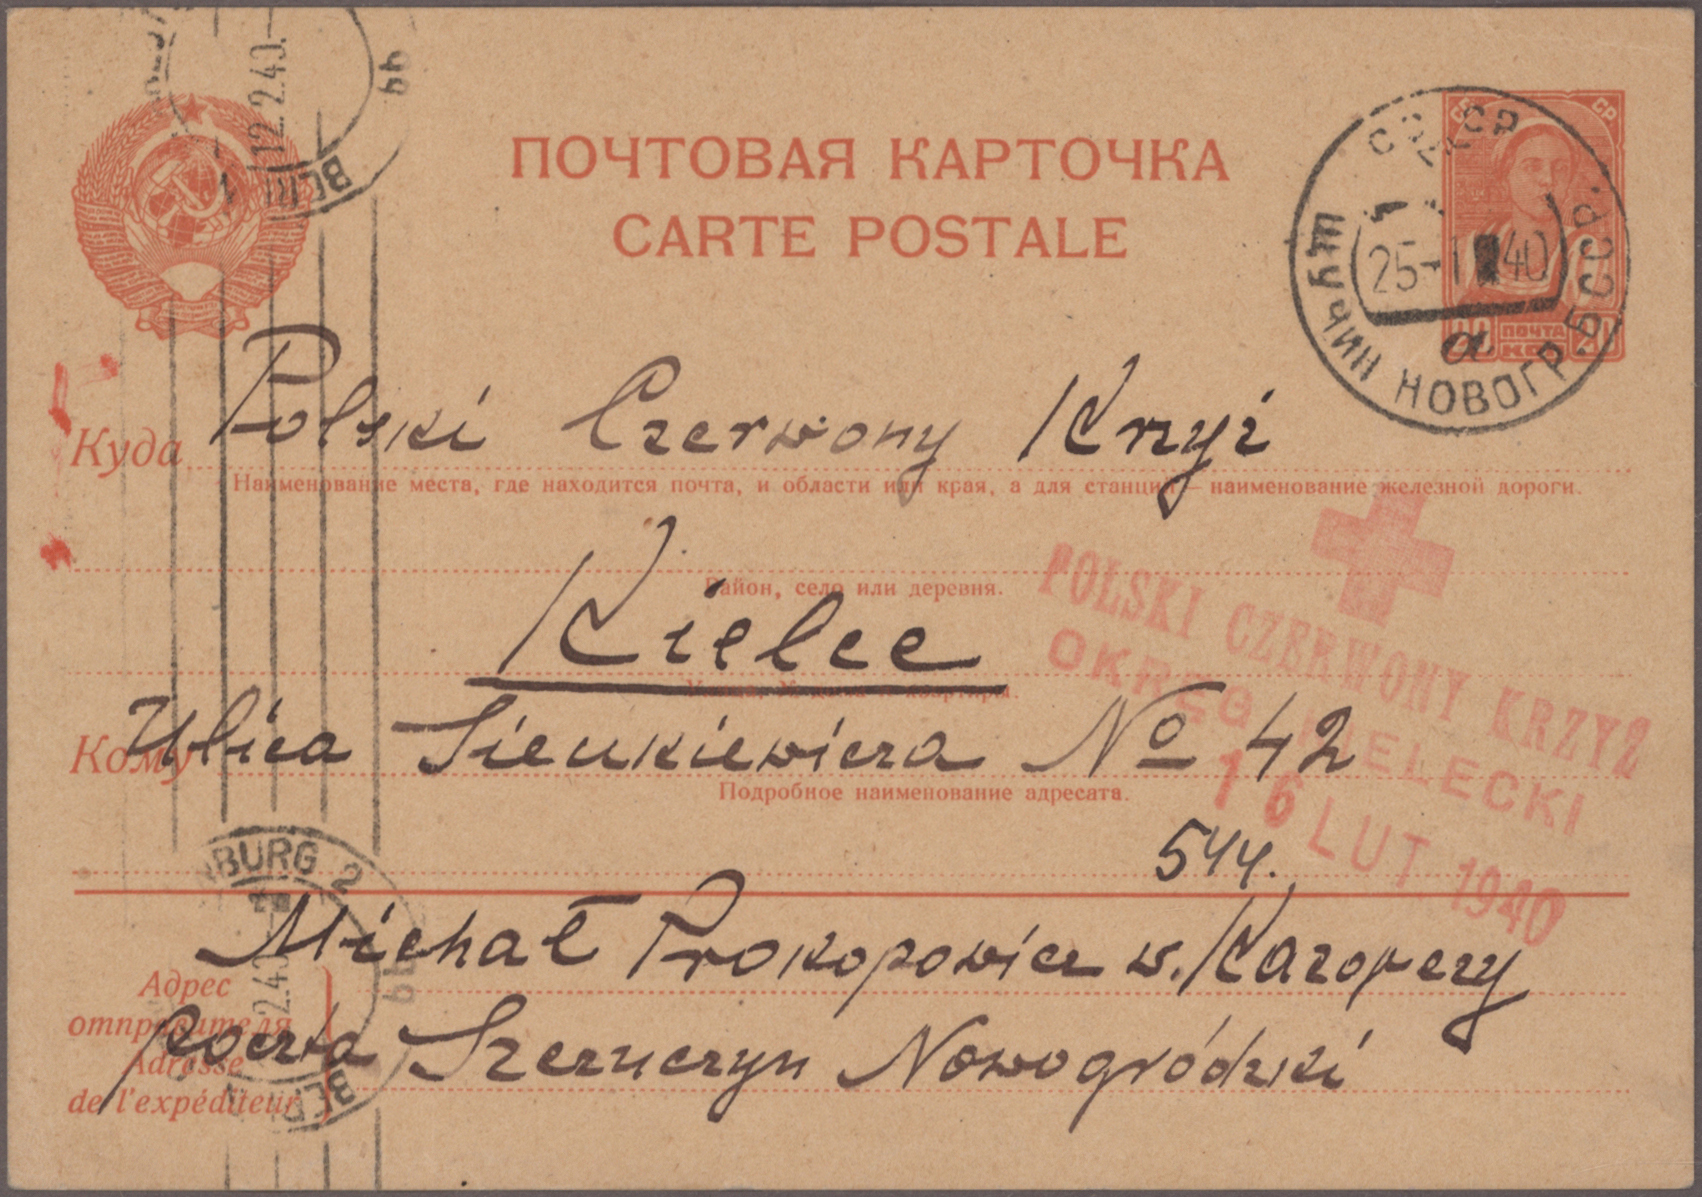 12.2.40.-
99
BERLIN
ПОЧТОВАЯ КАРТОЧКА
CARTE POSTALE
СССР
25-1 40
а
НОВОГР. БССР.
ПОЧТА
20 КОП 20
Куда Polski Czerwony Krzyż
Наименование места, где находится почта, и области или края, а для станции — наименование железной дороги.
Район, село или деревня.
Kielce
Кому Ulica Sienkiewicza No 42
Подробное наименование адресата.
POLSKI CZERWONY KRZYŻ
OKRĘG KIELECKI
16 LUT 1940
544.
BURG 2
Michał Prokopowicz w.
Адрес
отправителя
Adresse
de l'expéditeur
poczta Szczuczyn Nowogródzki
99